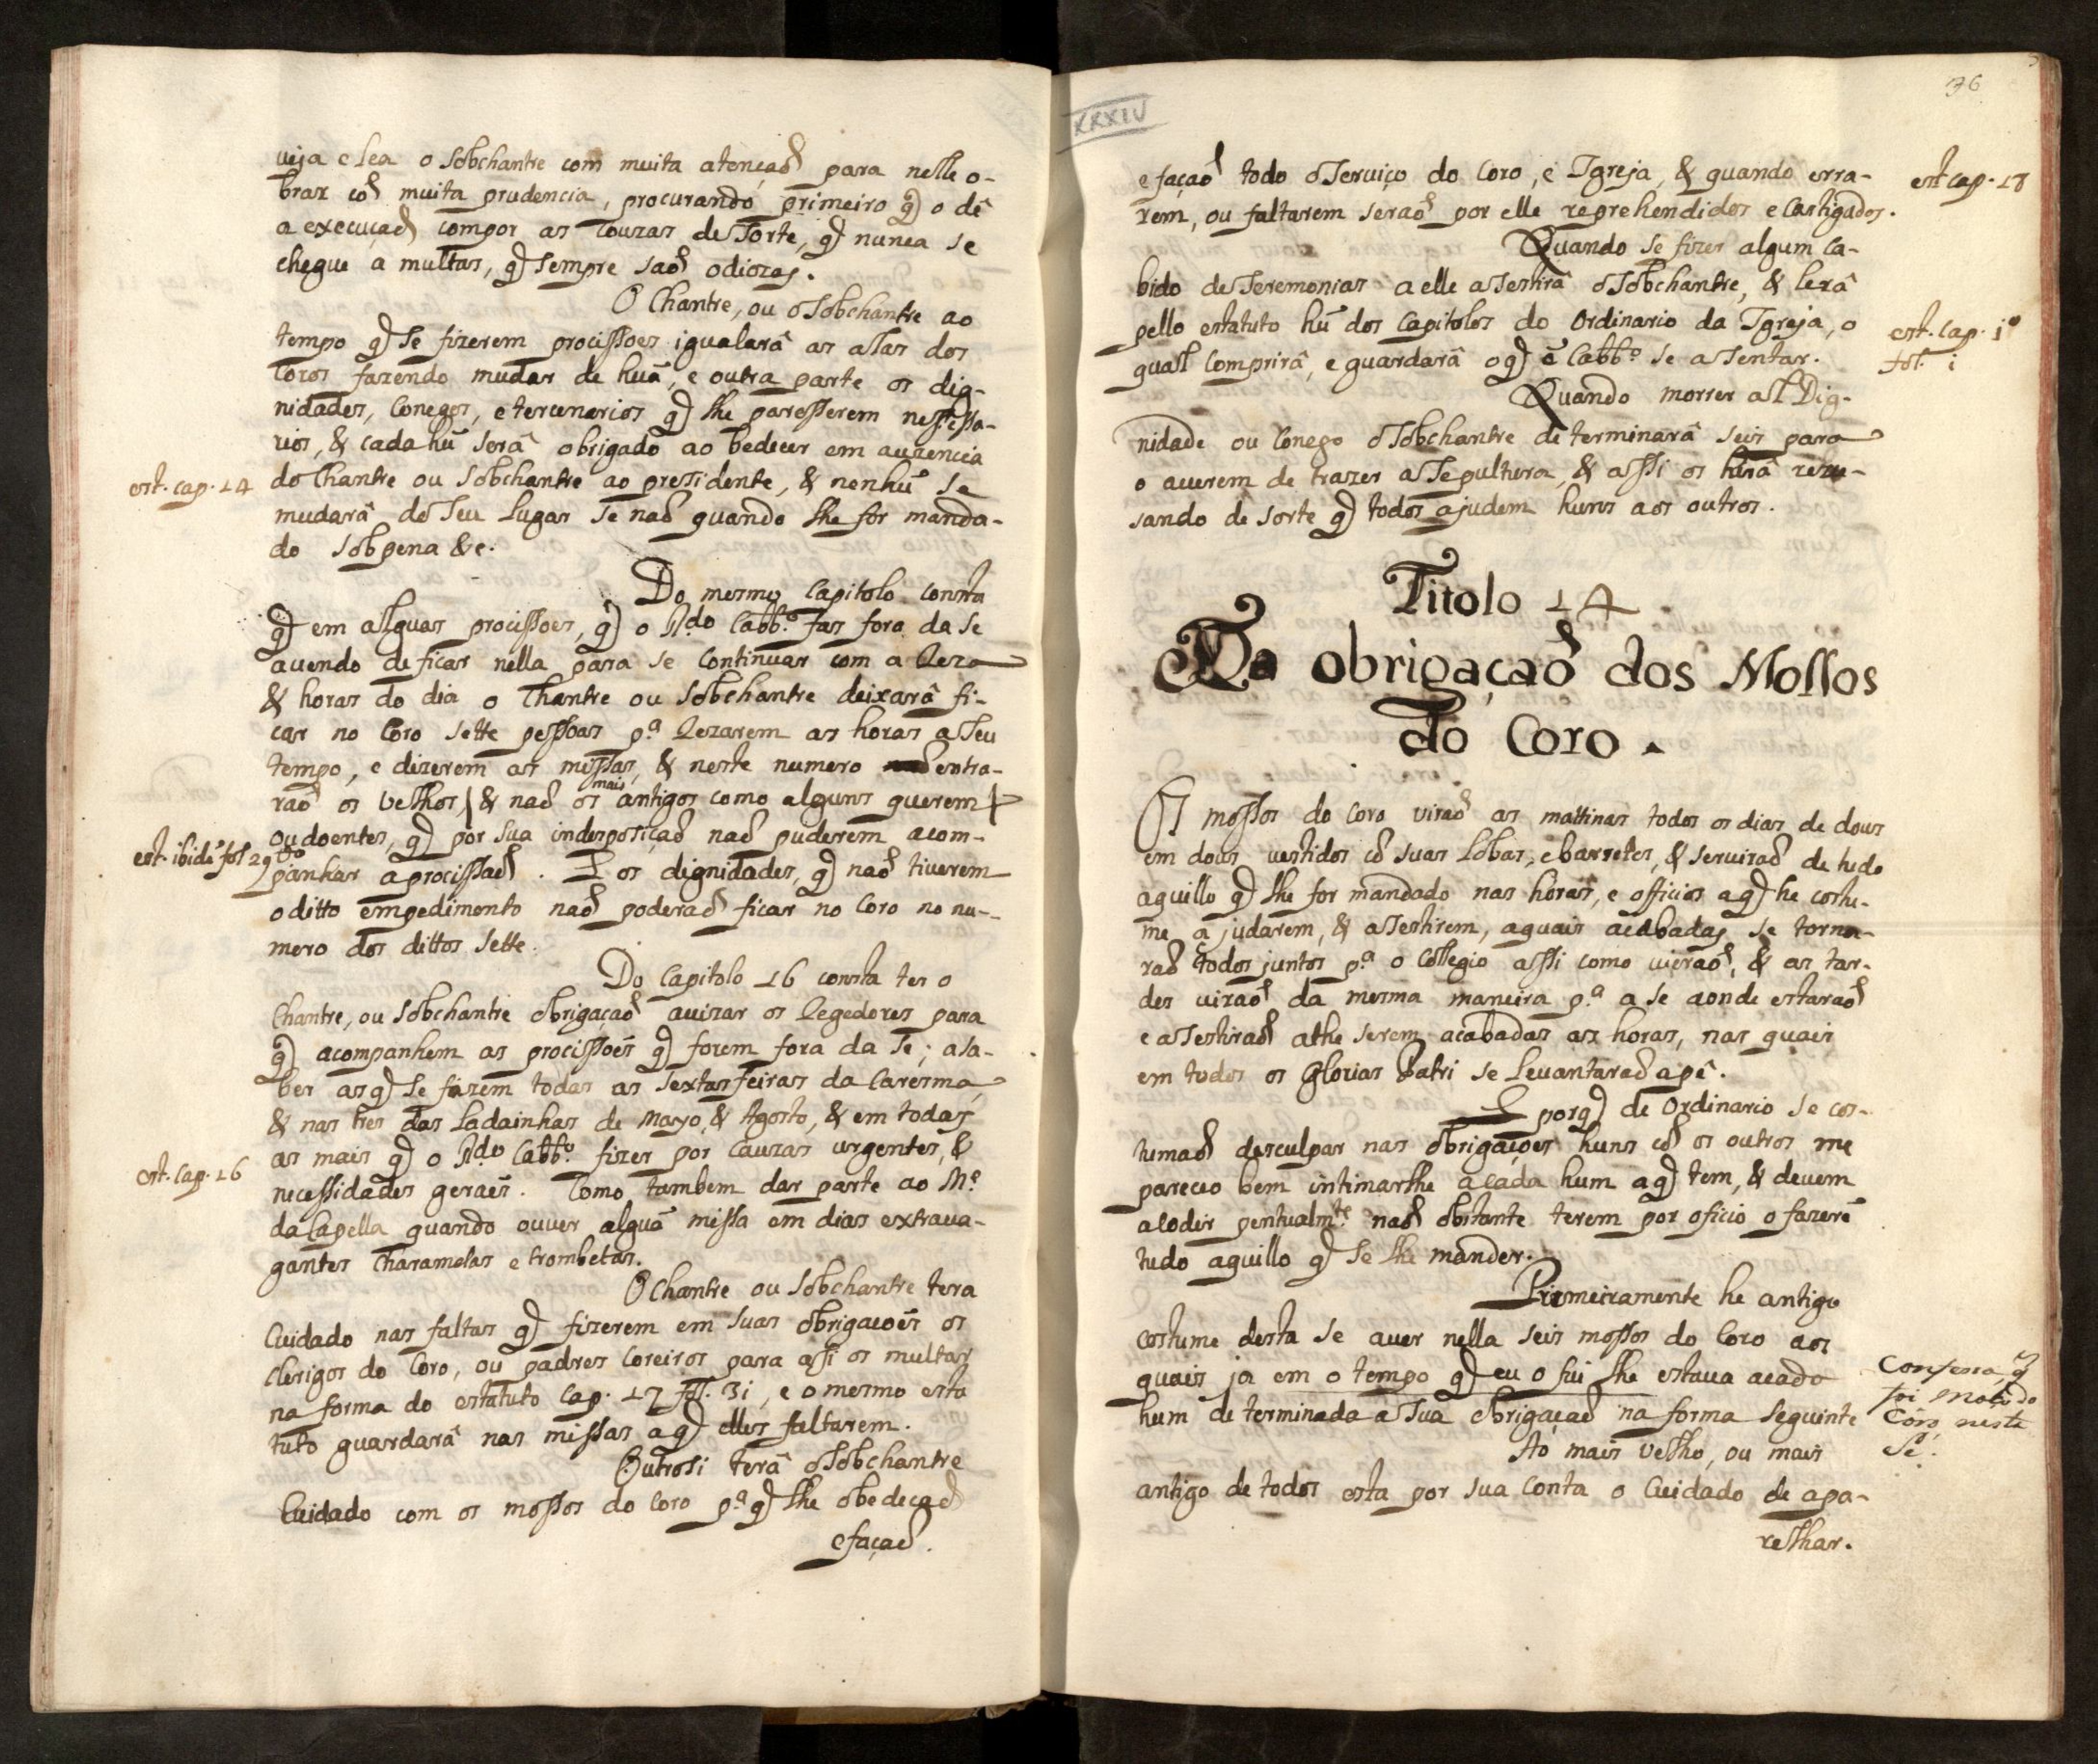 veja e lea o sobchantre com muita atençaõ para nelle o-
brar cõ muita prudencia, procurando primeiro q̃ o dê
a execuçaõ compor as couzas de sorte, q̃ nunca se
chegue a multas, q̃ sempre saõ odiozas.
O Chantre, ou o sobchantre ao
tempo q̃ se fizerem procissoes igualarâ as alas dos
coros fazendo mudar de huã, e outra parte os dig-
nidades, conegos, e tercenarios q̃ lhe paresserem nessessa-
rios, & cada hũ serâ obrigado ao bedecer em auzencia
est. cap. 14
do Chantre ou sobchantre ao pressidente, & nenhũ se
mudarâ do seu lugar se naõ quando lhe for manda-
do sobpena &c.
Do mesmo capitolo consta
q̃ em alguas procissoes, q̃ o R.do Cabb.o fas fora da se
auendo de ficar nella para se continuar com a reza
& horas do dia o Chantre ou sobchantre deixarâ fi-
car no coro sette pessoas p.a rezarem as horas a seu
tempo, e dizerem as missas, & neste numero entra-
raõ os velhos, & naõ os mais antigos como alguns querem
ou doentes, q̃ por sua indesposiçaõ naõ puderem acom-
est. ibidẽ fol 29 v.o
panhar a procissaõ. E os dignidades, q̃ naõ tiuerem
o ditto empedimento naõ poderaõ ficar no coro no nu-
mero dos dittos sette.
Do capitolo 16 consta ter o
Chantre, ou sobchantre obrigaçaõ auizar os regedores para
q̃ acompanhem as procissoẽs q̃ forem fora da se; asa-
ber as q̃ se fazem todas as sextas feiras da caresma,
& nas tres das Ladainhas de Mayo, & Agosto, & em todas
as mais q̃ o R.do Cabb.o fizer por cauzas urgentes, &
est. cap. 16
necessidades geraes. Como tambem dar parte ao M.e
da capella quando ouuer alguã missa em dias extraua-
gantes charamelas e trombetas.
O Chantre ou sobchantre tera
cuidado nas faltas q̃ fizerem em suas obrigacoẽs os
clerigos do coro, ou padres coreiros para assi os multar
na forma do estatuto cap. 17 fol. 31, e o mesmo esta
tuto guardarâ nas missas a q̃ elles faltarem.
Outrosi terâ o sobchantre
cuidado com os mossos do coro p.a q̃ lhe obedeçaõ
e façaõ.
36
XXXIV
e façaõ todo o seruiço do coro, e Igreja, & quando erra-
est cap. 18
rem, ou faltarem seraõ por elle reprehendidos e castigados.
Quando se fizer algum ca-
bido de seremonias a elle asestirâ o sobchantre, & lerâ
pello estatuto hũ dos capitolos do ordinario da Igreja, o
est. cap. 1o
qual comprirâ, e guardarâ o q̃ ẽ Cabb.o se asentar.
fol. 1
Quando morrer al Dig-
nidade ou conego o sobchantre determinarâ seis para
o auerem de trazer a sepultura, & assi os hirâ reze-
sando de sorte q̃ todos ajudem huns aos outros.
Titolo 14
Da obrigaçaõ dos Mossos
do Coro.
Os mossos do coro viraõ as mattinas todos os dias de dous
em dous, vestidos cõ suas lobas, e barretes, & seruiraõ de tudo
aquillo q̃ lhe for mandado nas horas, e officios a q̃ he costu-
me a judarem, & asestirem, aquais acabadas se torna-
raõ todos juntos p.a o Collegio assi como vieraõ, & as tar-
des viraõ da mesma maneira p.a a se aonde estaraõ
e asestiraõ athe serem acabadas as horas, nas quais
em todos os Glorias Patri se leuantaraõ a pê.
E porq̃ de Ordinario se cos-
tumaõ desculpar nas obrigaçoes huns cõ os outros me
pareceo bem intimarlhe a cada hum a q̃ tem, & deuem
acodir pentualm.te naõ obstante terem por oficio o fazerẽ
tudo aquillo q̃ se lhe mander.
Primeiramente he antigo
costume desta se auer nella seis mossos do coro aos
quais ja em o tempo q̃ eu o fui lhe estaua acado
Confessa, q̃
foi Moço do
Coro nesta
Sé.
hum determinada a sua obrigaçaõ na forma seguinte
Ao mais velho, ou mais
antigo de todos esta por sua conta o cuidado de apa-
relhar.